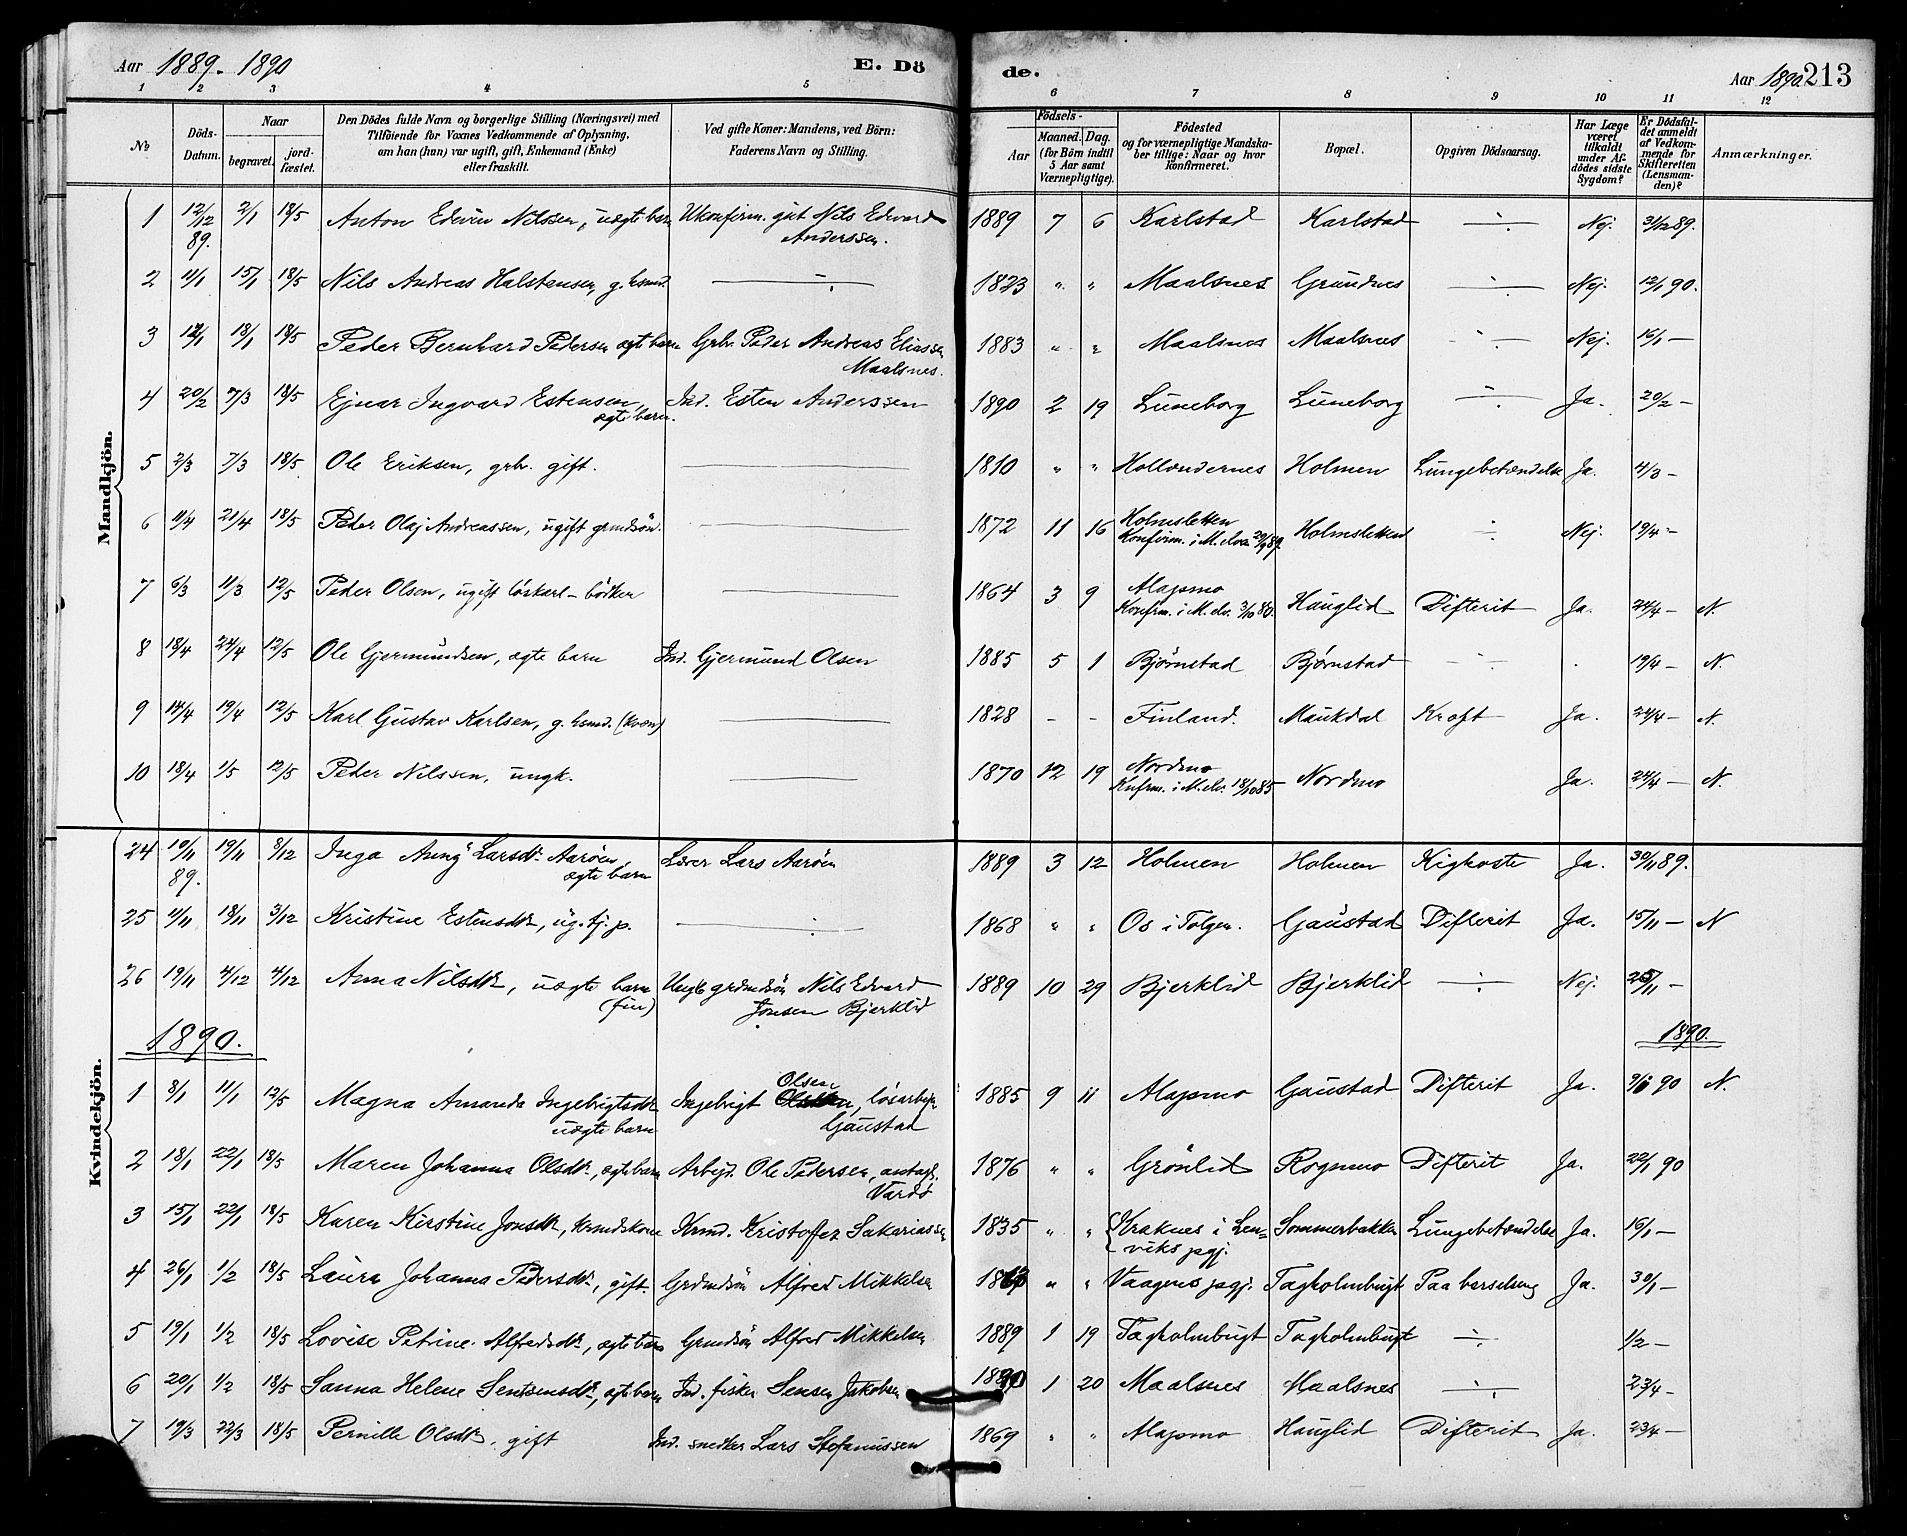 Aar 1889-1890 E. Dö de. Aar 1890. 213
1 2 3 4 5 6 7 8 9 10 11 12
No Döds-Datum. Naar begravet. jord-fæstet. Den Dödes fulde Navn og borgerlige Stilling (Næringsvei) med Tilföiende for Voxnes Vedkommende af Oplysning, om han (hun) var ugift, gift, Enkemand (Enke) eller fraskilt. Ved gifte Koner: Mandens, ved Börn: Faderens Navn og Stilling. Födsels- Aar Maaned. Dag. (for Börn indtil 5 Aar samt Værnepligtige). Födested og for værnepligtige Mandskaber tillige: Naar og hvor konfirmeret. Bopæl. Opgiven Dödsaarsag. Har Læge været tilkaldt under Afdödes sidste Sygdom? Er Dödsfaldet anmeldt af Vedkommende for Skifteretten (Lensmanden)? Anmærkninger.
Mandkjön.
1 12/12 89. 2/1 18/5 Anton Edvin Nilssen, uægte barn Ukonfirm. gut Nils Edvard Anderssen. 1889 7 6 Karlstad Karlstad ÷ Nej. 31/12 89.
2 11/1 15/1 18/5 Nils Andreas Halstensen, g. hsmd. ÷ 1823 " " Maalsnes Grundnes ÷ Nej. 12/1 90.
3 12/1 18/1 18/5 Peder Bernhard Pedersen ægte barn Grbr. Peder Andreas Eliassen Maalsnes. 1883 " " Maalsnes Maalsnes ÷ Nej. 16/1 —
4 20/2 7/3 18/5 Ejnar Ingvard Estensen, ægte barn. Ind. Esten Anderssen 1890 2 19 Luneborg Luneborg ÷ Ja. 20/2 —
5 2/3 7/3 18/5 Ole Eriksen, grbr. gift. — 1810 " " Hollendernes Holmen Lungebetændelse Ja. 4/3 —
6 11/4 21/4 18/5 Peder Olaj Andreassen, ugift grmdsön. — 1872 11 16 Holmsletten Konfirm. i M.elven 29/9 89. Holmsletten ÷ Nej. 19/4 —
7 6/3 11/3 12/5 Peder Olsen, ugift löskarl - bödker — 1864 3 9 Alapmo Konfirm. i M.elv. 3/10 80. Hauglid Difterit Ja. 24/4 — N.
8 18/4 24/4 12/5 Ole Gjermundsen, ægte barn Ind. Gjermund Olsen 1885 5 1 Bjørnstad Bjørnstad ÷ . 19/4 — N.
9 14/4 19/4 12/5 Karl Gustav Karlsen, g. hsmd. (kvæn) — 1828 - - Finland. Maukdal Kroft Ja. 24/4 — N.
10 18/4 1/5 12/5 Peder Nilssen, ungk. — 1870 12 19 Nordmo Knfrm. i M.elv. 18/10 85 Nordmo Ja. 24/4 — N.
Kvindekjön.
24 10/11 89. 19/11 8/12 Inga Larsdtr. Aarøen, ægte barn Lærer Lars Aarøen 1889 3 12 Holmen Holmen Kighoste Ja. 30/11 89.
25 11/11 18/11 3/12 Kristine Estensdtr, ug. tj. p. ÷ 1868 " " Os i Tolgen. Gaustad Difterit Ja. 15/11 — N
26 19/11 4/12 4/12 Anna Nilsdtr, uægte barn (fin) Ungk grdmdsön Nils Edvard Jonsen Bjerklid 1889 10 29 Bjerklid Bjerklid ÷ Nej. 25/11 —
1890. 1890.
1 8/1 11/1 12/5 Magna Amanda Ingebrigtsdtr uægte barn Ingebrigt Olsen, løsarbejder Gaustad 1885 9 11 Alapmo Gaustad Difterit Ja. 9/1 90 N.
2 18/1 22/1 18/5 Maren Johanna Olsdtr., ægte barn Arbejd. Ole Pedersen, antagl. Vardö 1876 " " Grönlid Rognmo Difterit Ja. 22/1 90
3 15/1 22/1 18/5 Karen Kirstine Jonsdtr, hsmdskone Hsmd. Kristofer Sakariassen 1835 " " Kraknes i Lenviks pgj. Sommerbakken Lungebetændelse Ja. 16/1 —
4 26/1 1/2 18/5 Laura Johanna Pedersdtr., gift. Grdmdsön Alfred Mikkelsen " " Vaagens pgj. Tagholmbugt Paa barselseng Ja. 30/1 —
5 19/1 1/2 18/5 Lovise Petrine Alfredsdtr., ægte barn Grmdsön Alfred Mikkelsen 1889 1 19 Tagholmbugt Tagholmbugt ÷ 1/2 —
6 20/1 1/2 18/5 Sanna Helene Sentsensdtr., ægte barn Ind. fisker Sensen Jakobsen 1890 1 20 Maalsnes Maalsnes ÷ 23/4 —
7 19/3 22/3 18/5 Pernille Olsdtr. gift Ind. snedker Lars Stefanussen 1869 " " Alapmo Hauglid Difterit Ja. 23/4 —